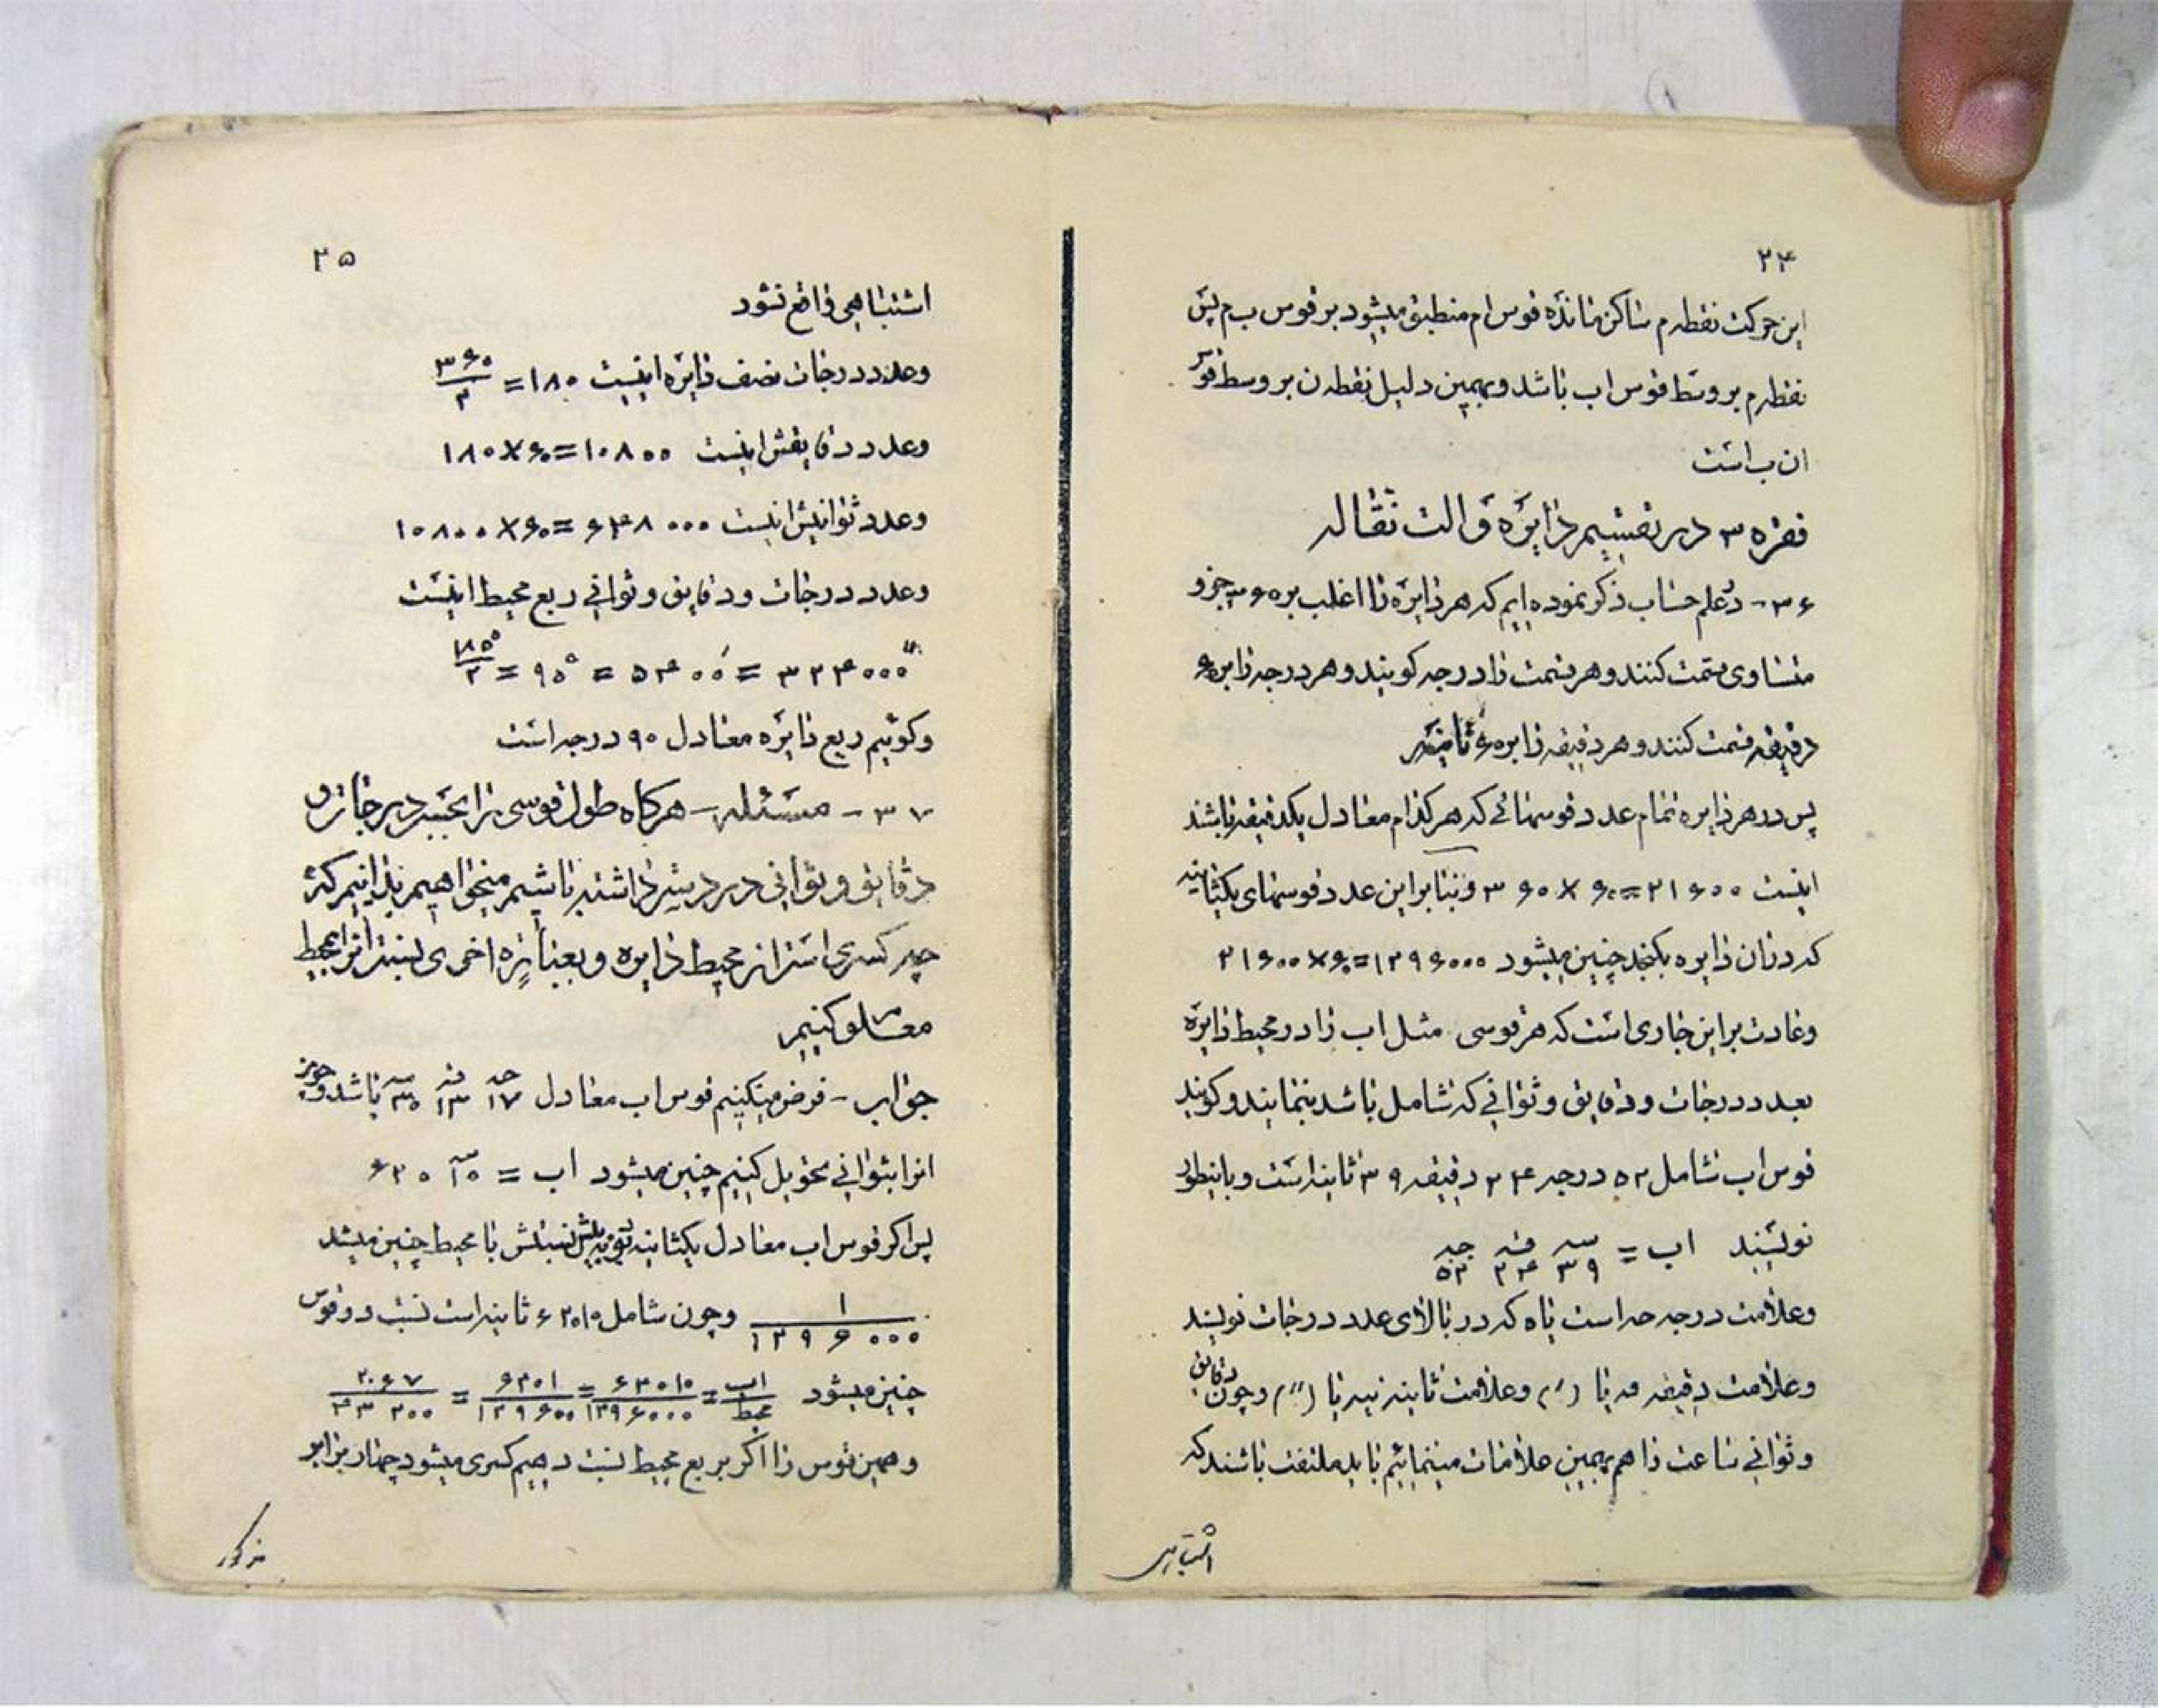 ۲۴
این حرکت نقطه م ساکن مانده قوس ام منطبق میشود بر قوس ب م پس
نقطه م بر وسط قوس اب باشد و بهمین دلیل نقطه ن بر وسط قوس
ان ب است
فقره ۳ در تقسیم دایره و الت نقاله
۳۶- در علم حساب ذکر نموده ایم که هر دایره را اغلب به ۳۶۰ جزو
متساوی قسمت کنند و هر قسمت را درجه کویند و هر درجه را به ۶۰
دقیقه قسمت کنند و هر دقیقه را به ۶۰ ثانیه
پس در هر دایره تمام عدد قوسهائی که هر کدام معادل یکدقیقه باشند
اینست ۲۱۶۰۰=۶۰×۳۶۰ و بنا بر این عدد قوسهای یکثانیه
که در ان دایره بکنجد چنین میشود ۱۲۹۶۰۰۰=۶۰×۲۱۶۰۰
و عادت بر این جاری است که هر قوسی مثل اب را در محیط دایره
بعدد درجات و دقایق و ثوانی که شامل باشد بنمایند و کویند
قوس اب شامل ۵۲ درجه ۲۴ دقیقه ۳۹ ثانیه است و باینطور
نویسند اب = ۳۹ ۲۴ ۵۲
و علامت درجه حه است یا ه که در بالای عدد درجات نویسند
و علامت دقیقه قه یا (′) و علامت ثانیه نیه یا (″) و چون دقایق
و ثوانی ساعت را هم بهمین علامات مینمائیم باید ملتفت باشند که
اشتباهی
۲۵
اشتباهی واقع نشود
و عدد درجات نصف دایره اینست ۱۸۰ = ۳۶۰/۲
و عدد دقایقش اینست ۱۰۸۰۰=۶۰×۱۸۰
و عدد ثوانیش اینست ۶۴۸۰۰۰=۶۰×۱۰۸۰۰
و عدد درجات و دقایق و ثوانی ربع محیط اینست
۱۸۰°/۲ = ۹۰° = ۵۴۰۰′ = ۳۲۴۰۰۰″
و کوئیم ربع دایره معادل ۹۰ درجه است
۳۷- مسئله- هرکاه طول قوسی را بحسب درجات و
دقایق و ثوانی در دست داشته باشیم میخواهیم بدانیم که
چه کسری است از محیط دایره و بعبارة اخری نسبت انرا بمحیط
معلوم کنیم
جواب- فرض میکنیم قوس اب معادل ۱۷ ۱۳ ۳۰ باشد و چون
انرا بثوانی تحویل کنیم چنین میشود اب = ۶۲۰۱۰
پس اکر قوس اب معادل یکثانیه نسبتش با محیط چنین میشد
۱/۱۲۹۶۰۰۰ و چون شامل ۶۲۰۱۰ ثانیه است نسبت دو قوس
چنین میشود اب/محیط = ۶۲۰۱۰/۱۲۹۶۰۰۰ = ۶۲۰۱/۱۲۹۶۰۰ = ۲۰۶۷/۴۳۲۰۰
و همین قوس را اکر بربع محیط نسبت دهیم کسری میشود چهار برابر
مذکور